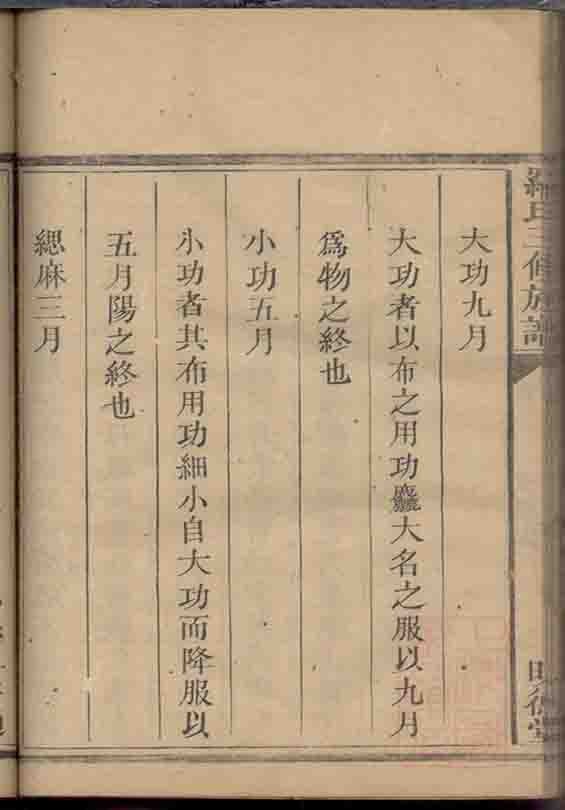 羅氏三修族譜
大功九月
大功者以布之用功麤大名之服以九月
爲物之終也
小功五月
小功者其布用功細小自大功而降服以
五月陽之終也
緦麻三月